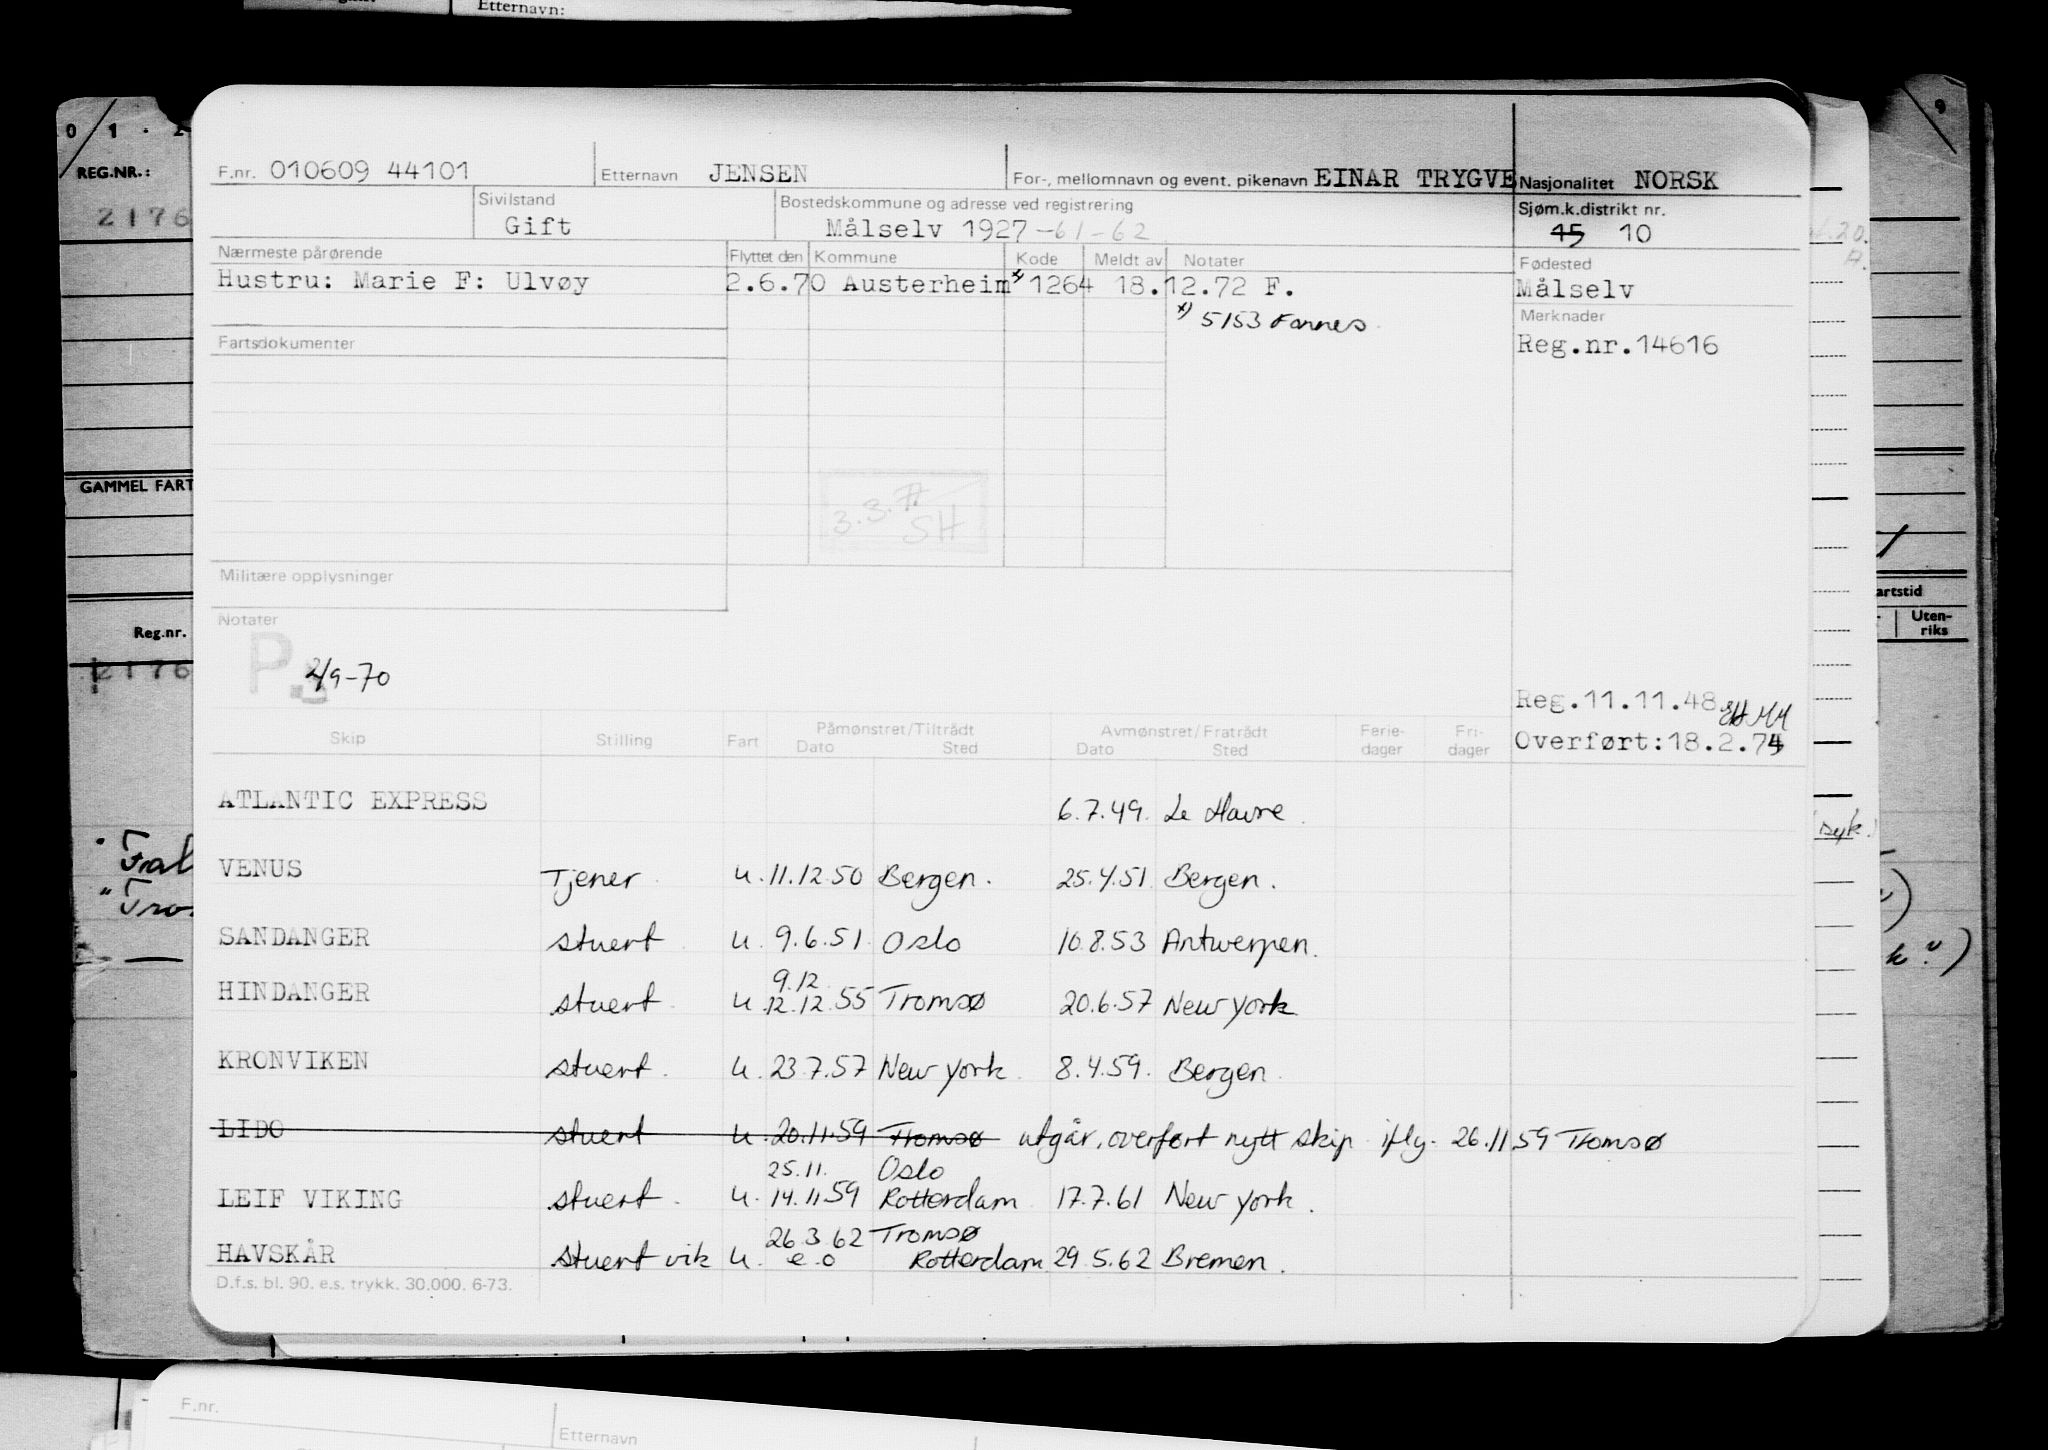 Etternavn:
REG.NR.:
2176
GAMMEL FART
Reg.nr.
2176
F.nr. 010609 44101 Etternavn JENSEN For-, mellomnavn og event. pikenavn EINAR TRYGVE Nasjonalitet NORSK
Sivilstand Bostedskommune og adresse ved registrering Sjøm.k.distrikt nr.
Gift Målselv 1927 -61-62 15 10
Nærmeste pårørende Flyttet den Kommune Kode Meldt av Notater Fødested
Hustru: Marie F: Ulvøy 2.6.70 Austerheim x) 1264 18.12.72 F. Målselv
x) 5153 Fonnes Merknader
Fartsdokumenter Reg.nr.14616
3.3.
SH
Militære opplysninger
Notater
2/9-70
Reg.11.11.48.
Overført:18.2.74
Skip Stilling Fart Påmønstret/Tiltrådt Avmønstret/Fratrådt Ferie- Fri-
Dato Sted Dato Sted dager dager
ATLANTIC EXPRESS 6.7.49. Le Havre.
VENUS Tjener u. 11.12.50 Bergen. 25.4.51. Bergen.
SANDANGER stuert u. 9.6.51. Oslo 10.8.53 Antwerpen.
9.12
HINDANGER stuert u. 12.12.55 Tromsø 20.6.57 New York
KRONVIKEN stuert. u. 23.7.57 New York 8.4.59. Bergen.
LIDO stuert u. 20.11.59 Tromsø utgår, overført nytt skip ifly. 26.11.59 Tromsø
25.11. Oslo
LEIF VIKING stuert. u. 14.11.59 Rotterdam 17.7.61 New York.
26.3.62 Tromsø
HAVSKÅR stuert vik u. e.o Rotterdam 29.5.62 Bremen.
D.f.s. bl. 90. e.s. trykk. 30.000. 6-73.
9
artstid
Uten-
riks
F.nr.
Etternavn